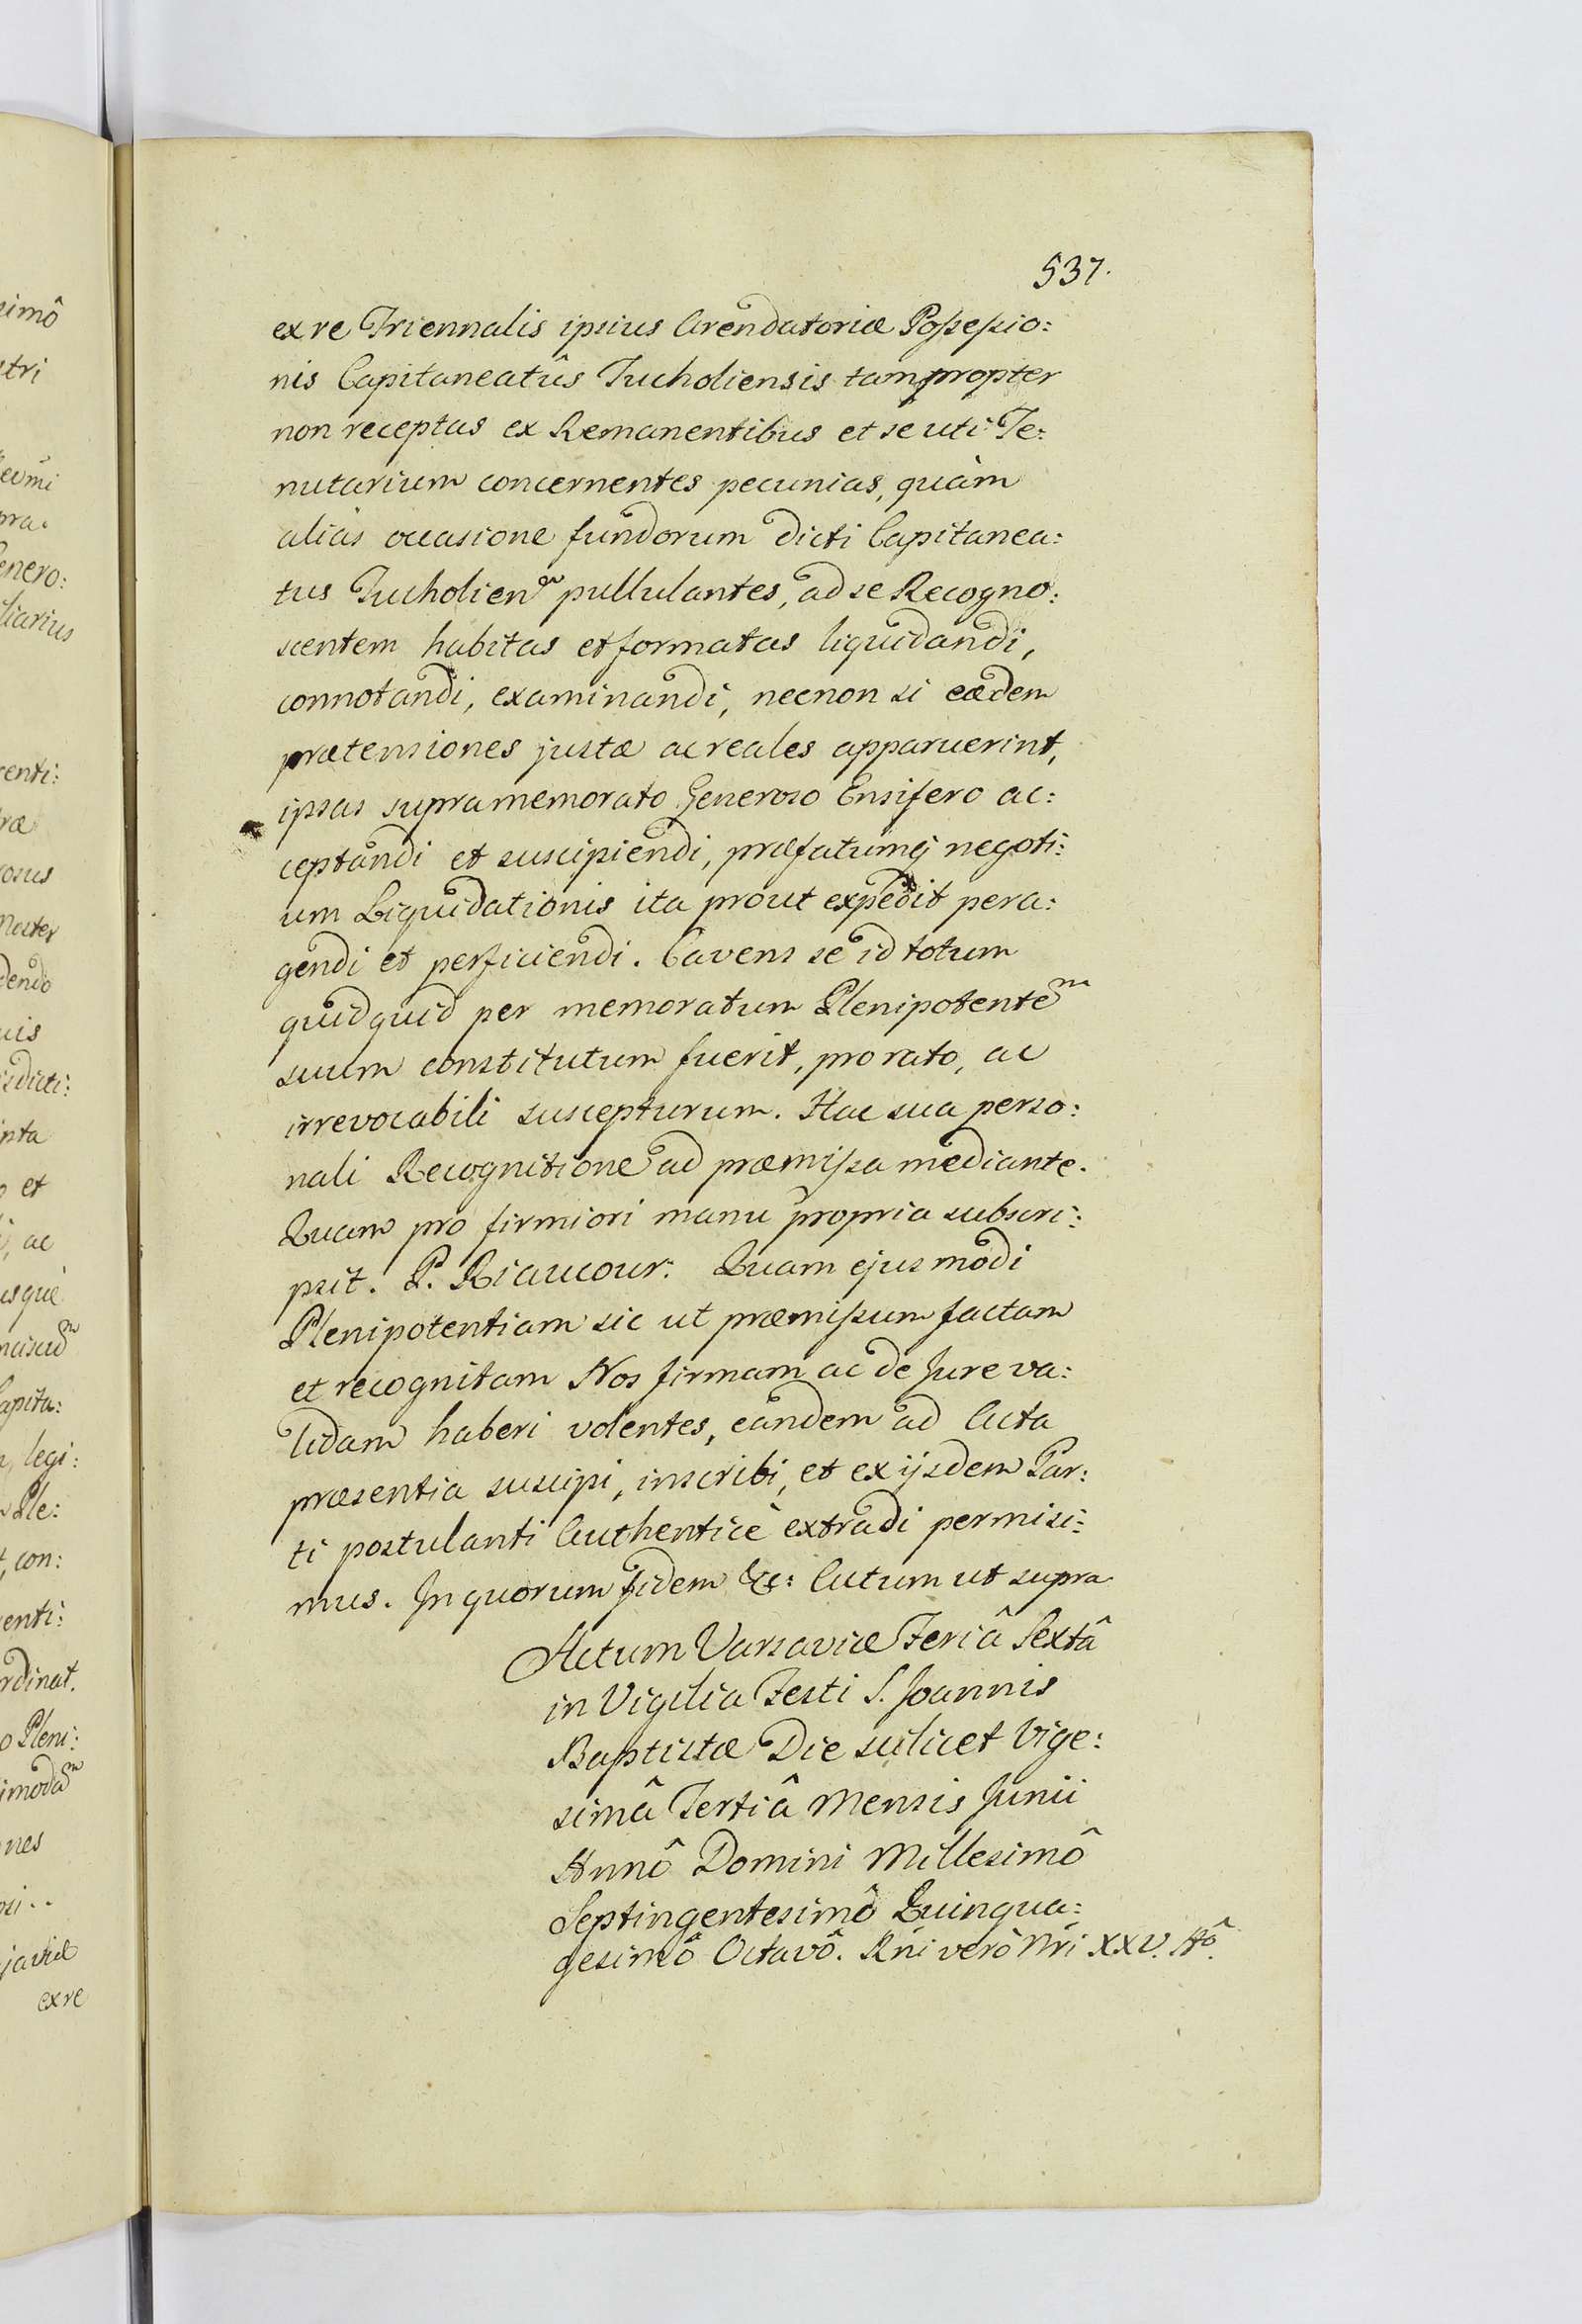 537.
ex re Triennalis ipsius Arendatoriæ Possessio:
nis Capitaneatûs Tucholiensis tam propter
non receptas ex Remanentibus et se uti Te:
nutarium concernentes pecunias, quàm
aliàs occasione fundorum dicti Capitanea:
tus Tucholien pullulantes, ad se Recogno:
scentem habitas et formatas liquidandi,
connotandi, examinandi, necnon si eædem
prætensiones justæ ac reales apparuerint,
ipsas supra memorato Generoso Ensifero ac:
ceptandi et suscipiendi, præfatumq negoti:
um Liquidationis ita prout expedit pera:
gendi et perficiendi. Cavens se id totum
quidquid per memoratum Plenipotentem
suum constitutum fuerit, pro rato, ac
irrevocabili suscepturum. Hac sua perso:
nali Recognitione ad præmissa mediante.
Quam pro firmiori manu propria subscri:
psit. P. Riaucour. Quam ejusmodi
Plenipotentiam sic ut præmissum factam
et recognitam Nos firmam ac de Jure va:
lidam haberi volentes, eandem ad Acta
præsentia suscipi, inscribi, et ex ijsdem Par:
ti postulanti Authenticè extradi permisi:
mus. In quorum fidem &c: Actum ut supra
Actum Varsaviæ Feriâ Sextâ
in Vigilia Festi S. Joannis
Baptistæ Die scilicet Vige:
simâ Tertiâ Mensis Junii
Annô Domini Millesimô
Septingentesimô Quinqua:
gesimô Octavô. Rńi verò Nri XXV. Aô.
simô
stri
enero:
liarius
centi:
ræ
osus
Noster
dendo
uis
isdicti:
o et
, ac
usquè
apita:
, legi:
Ple:
, con:
enti:
rdinat.
o Pleni:
imodam
nes
ex re